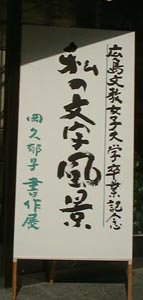 広島文教女子大学卒業記念
私の文字風景
岡久郁子 書作展